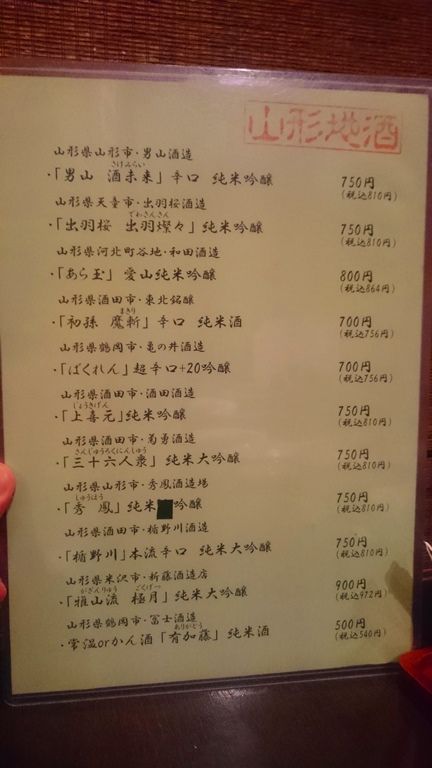 山形地酒
山形県山形市・男山酒造
さけみらい
・「男山 酒未来」辛口 純米吟醸 750円
(税込810円)
山形県天童市・出羽桜酒造
でわさんさん
・「出羽桜 出羽燦々」純米吟醸 750円
(税込810円)
山形県河北町谷地・和田酒造
・「あら玉」愛山純米吟醸 800円
(税込864円)
山形県酒田市・東北銘醸
まきり
・「初孫 魔斬」辛口 純米酒 700円
(税込756円)
山形県鶴岡市・亀の井酒造
・「ばくれん」超辛口+20吟醸 700円
(税込756円)
山形県酒田市・酒田酒造
じょうきげん
・「上喜元」純米吟醸 750円
(税込810円)
山形県酒田市・菊勇酒造
さんじゅうろくにんしゅう
・「三十六人衆」純米大吟醸 750円
(税込810円)
山形県山形市・秀鳳酒造場
しゅうほう
・「秀 鳳」純米 吟醸 750円
(税込810円)
山形県酒田市・楯野川酒造
・「楯野川」本流辛口 純米大吟醸 750円
(税込810円)
山形県米沢市・新藤酒造店
がざんりゅう ごくげつ
・「雅山流 極月」純米大吟醸 900円
(税込972円)
山形県鶴岡市・冨士酒造
ありがとう
・常温orかん酒「有加藤」純米酒 500円
(税込540円)